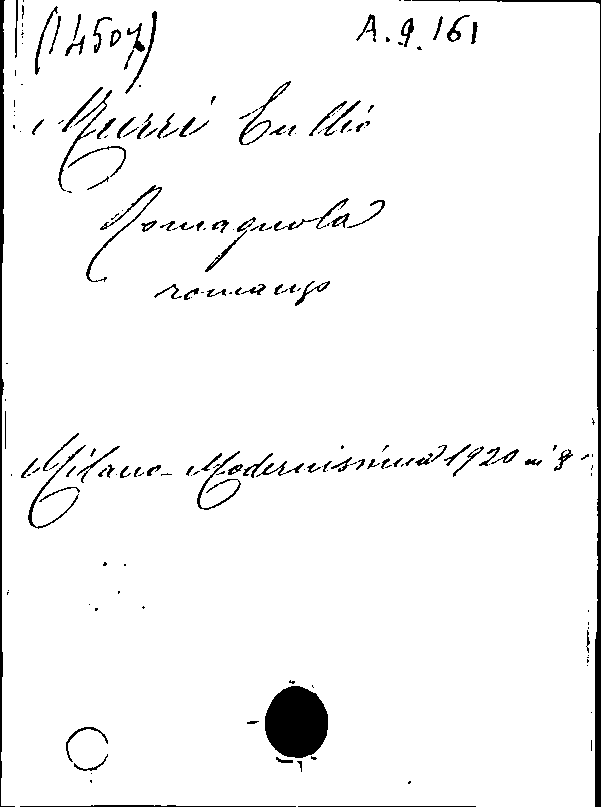 (14507) A.9.161
Murri Tullio
Romagnola
romanzo
Milano - Modernissima 1920 in 8°